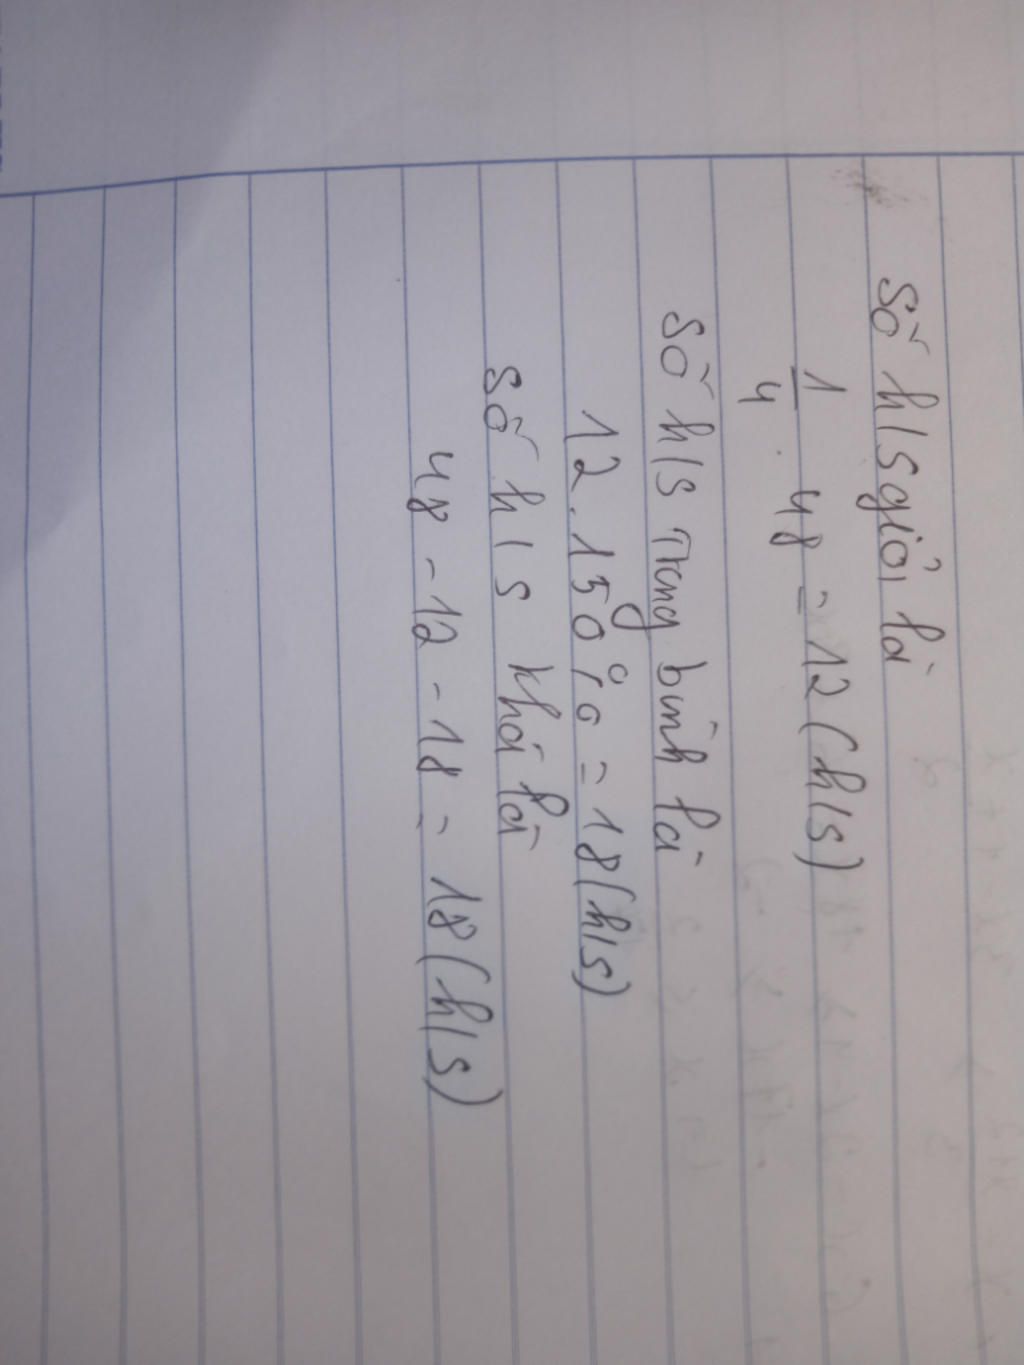 Số h/s giỏi là
1/4 . 48 = 12 (h/s)
Số h/s trung bình là
12 . 150% = 18 (h/s)
Số h/s khá là
48 - 12 - 18 = 18 (h/s)